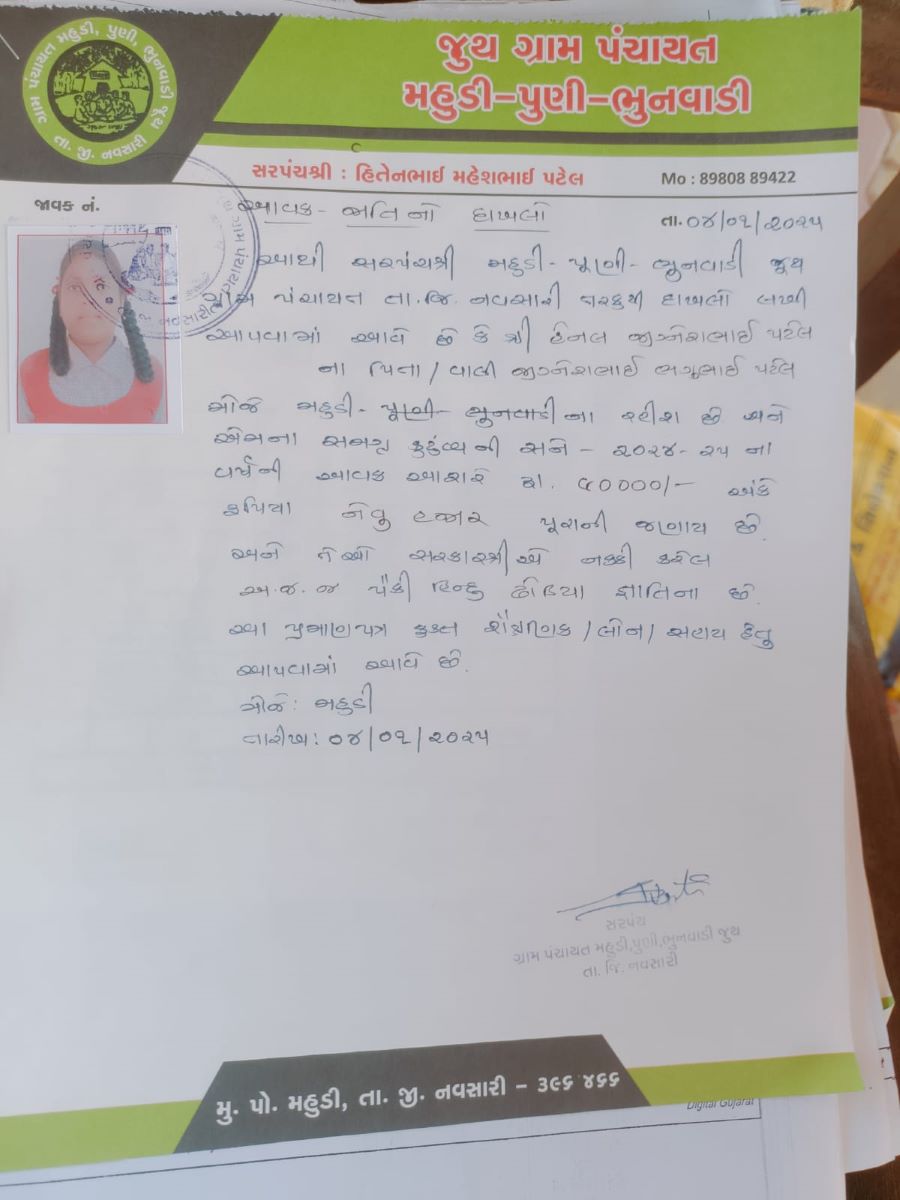 ગ્રામ પંચાયત મહુડી, પુણી, ભુનવાડી જુથ
તા. જી. નવસારી
જુથ ગ્રામ પંચાયત
મહુડી-પુણી-ભુનવાડી
સરપંચશ્રી : હિતેનભાઈ મહેશભાઈ પટેલ
Mo : 89808 89422
જાવક નં.
આવક - જાતિનો દાખલો
તા. ૦૪/૦૧/૨૦૨૫
આથી સરપંચશ્રી મહુડી - પૂણી - ભુનવાડી જુથ
ગ્રામ પંચાયત તા.જિ. નવસારી તરફથી દાખલો લખી
આપવામાં આવે છે કે શ્રી હેનલ જીગ્નેશભાઈ પટેલ
ના પિતા / વાલી જીગ્નેશભાઈ ભગુભાઈ પટેલ
મોજે મહુડી - પૂણી - ભુનવાડી ના રહીશ છે અને
એમના સમગ્ર કુટુંબની સને - ૨૦૨૪-૨૫ નાં
વર્ષની આવક આશરે રૂા. ૯૦૦૦૦/- અંકે
રૂપિયા નેવુ હજાર પૂરાની જણાય છે.
અને તેઓ સરકારશ્રીએ નક્કી કરેલ
અ.જ.જ પૈકી હિન્દુ ઢોડિયા જ્ઞાતિના છે.
આ પ્રમાણપત્ર ફક્ત શૈક્ષણિક / લોન / સહાય હેતુ
આપવામાં આવે છે.
મોજે : મહુડી
તારીખ : ૦૪/૦૧/૨૦૨૫
સરપંચ
ગ્રામ પંચાયત મહુડી,પુણી,ભુનવાડી જુથ
તા. જિ. નવસારી
મુ. પો. મહુડી, તા. જી. નવસારી - ૩૯૬ ૪૬૬
Digital Gujarat